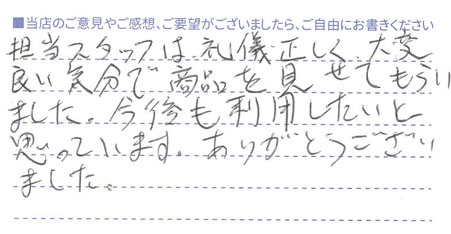 ■当店のご意見やご感想、ご要望がございましたら、ご自由にお書きください
担当スタッフは礼儀正しく、大変
良い気分で商品を見せてもらい
ました。今後も利用したいと
思っています。ありがとうござい
ました。